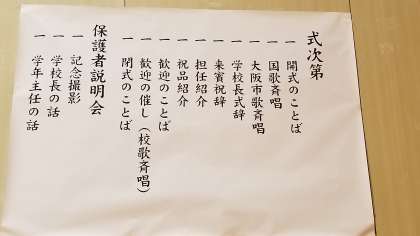 式次第
一 開式のことば
一 国歌斉唱
一 大阪市歌斉唱
一 学校長式辞
一 来賓祝辞
一 担任紹介
一 祝品紹介
一 歓迎のことば
一 歓迎の催し（校歌斉唱）
一 閉式のことば
保護者説明会
一 記念撮影
一 学校長の話
一 学年主任の話